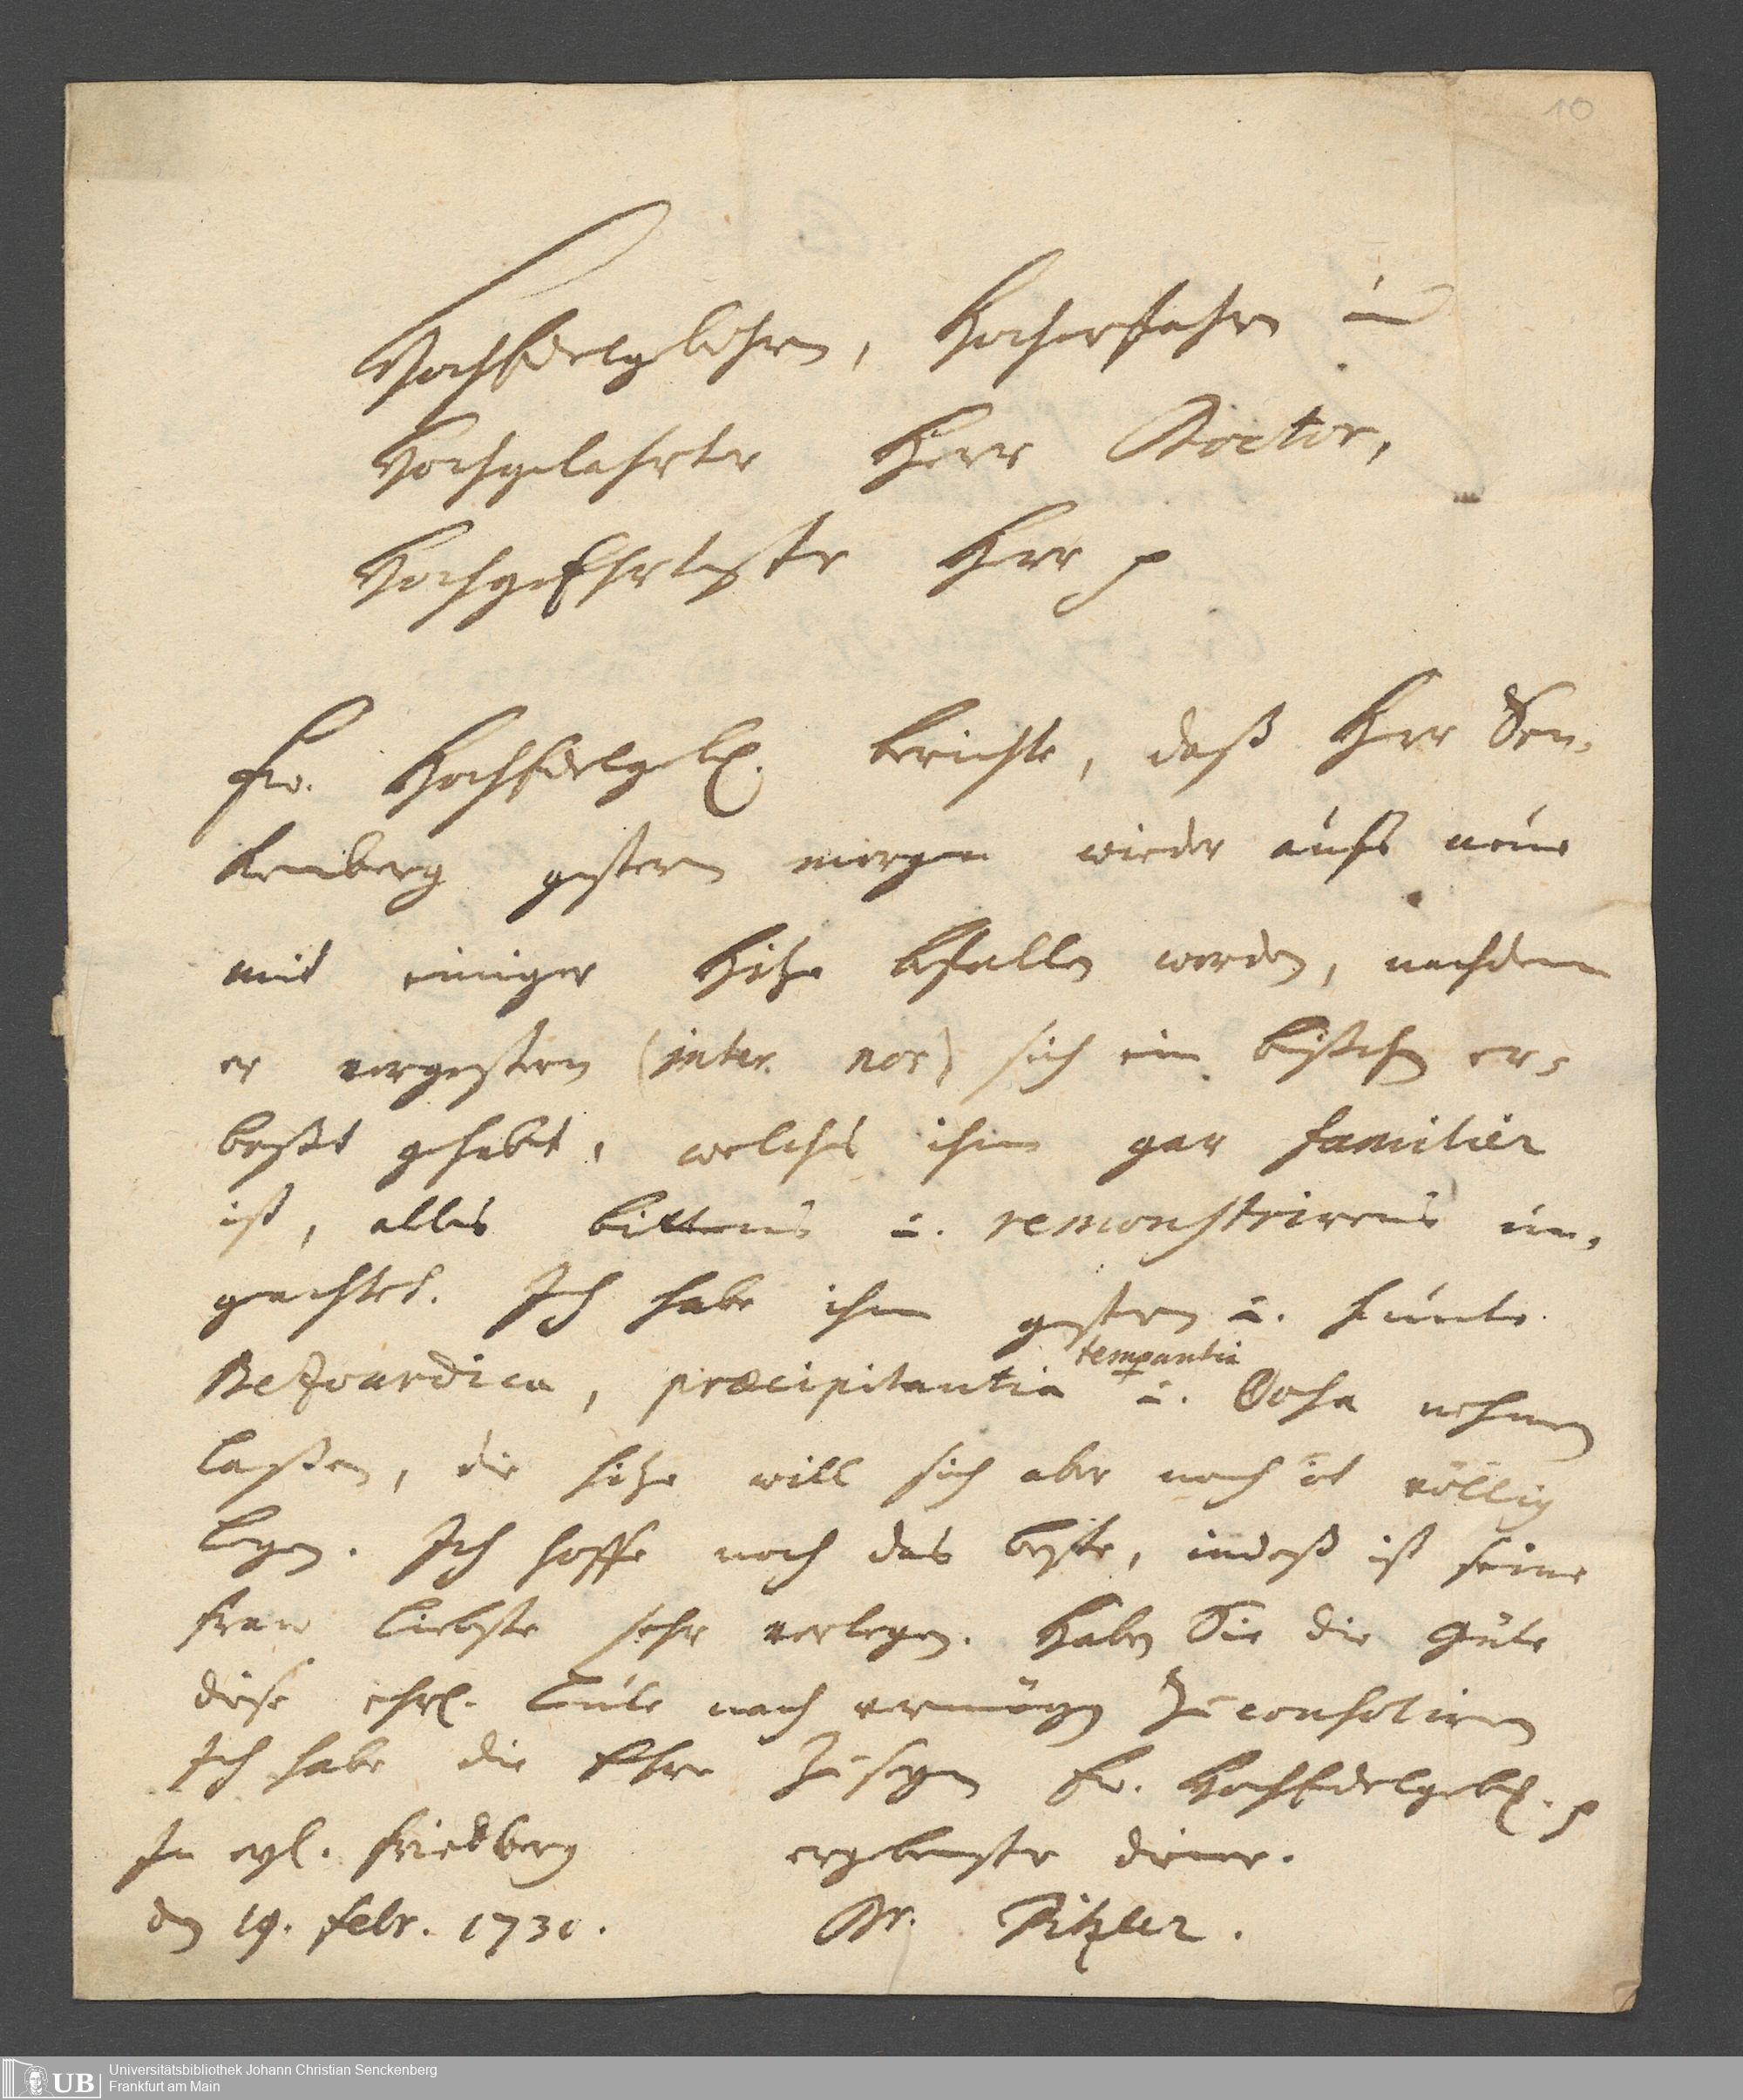 10
HochEdelgebohrn, Hocherfahrn u
Hochgelahrter Herr Doctor,
HochgeEhrtester Herr p
Ew. HochEdelgeb. berichte, daß Herr Sen-
kenberg gestern morgen wieder aufs neue
mit einiger Hitze befallen worden, nachdem
er vorgestern (inter nos) sich ein bißchen er-
boßt gehabt, welches ihm gar familiär
ist, alles bittens u. remonstrirens un-
geachtet. Ich habe ihm gestern u. heute
Bezoardica, præcipitantia temperantia u. Dosa nehmen
laßen, die hitze will sich aber noch nit völlig
legen. Ich hoffe noch das beste, indeß ist seine
Frau Liebste sehr verlegen. Haben Sie die Güte
diese ehrl. leute nach vermögen zu consoliren
Ich habe die Ehre zu seyn Ew. HochEdelgeb. p
In eyl. Friedberg ergebenster diener.
den 19. Febr. 1730. Dr. Pitzler.
Universitätsbibliothek Johann Christian Senckenberg
UB Frankfurt am Main